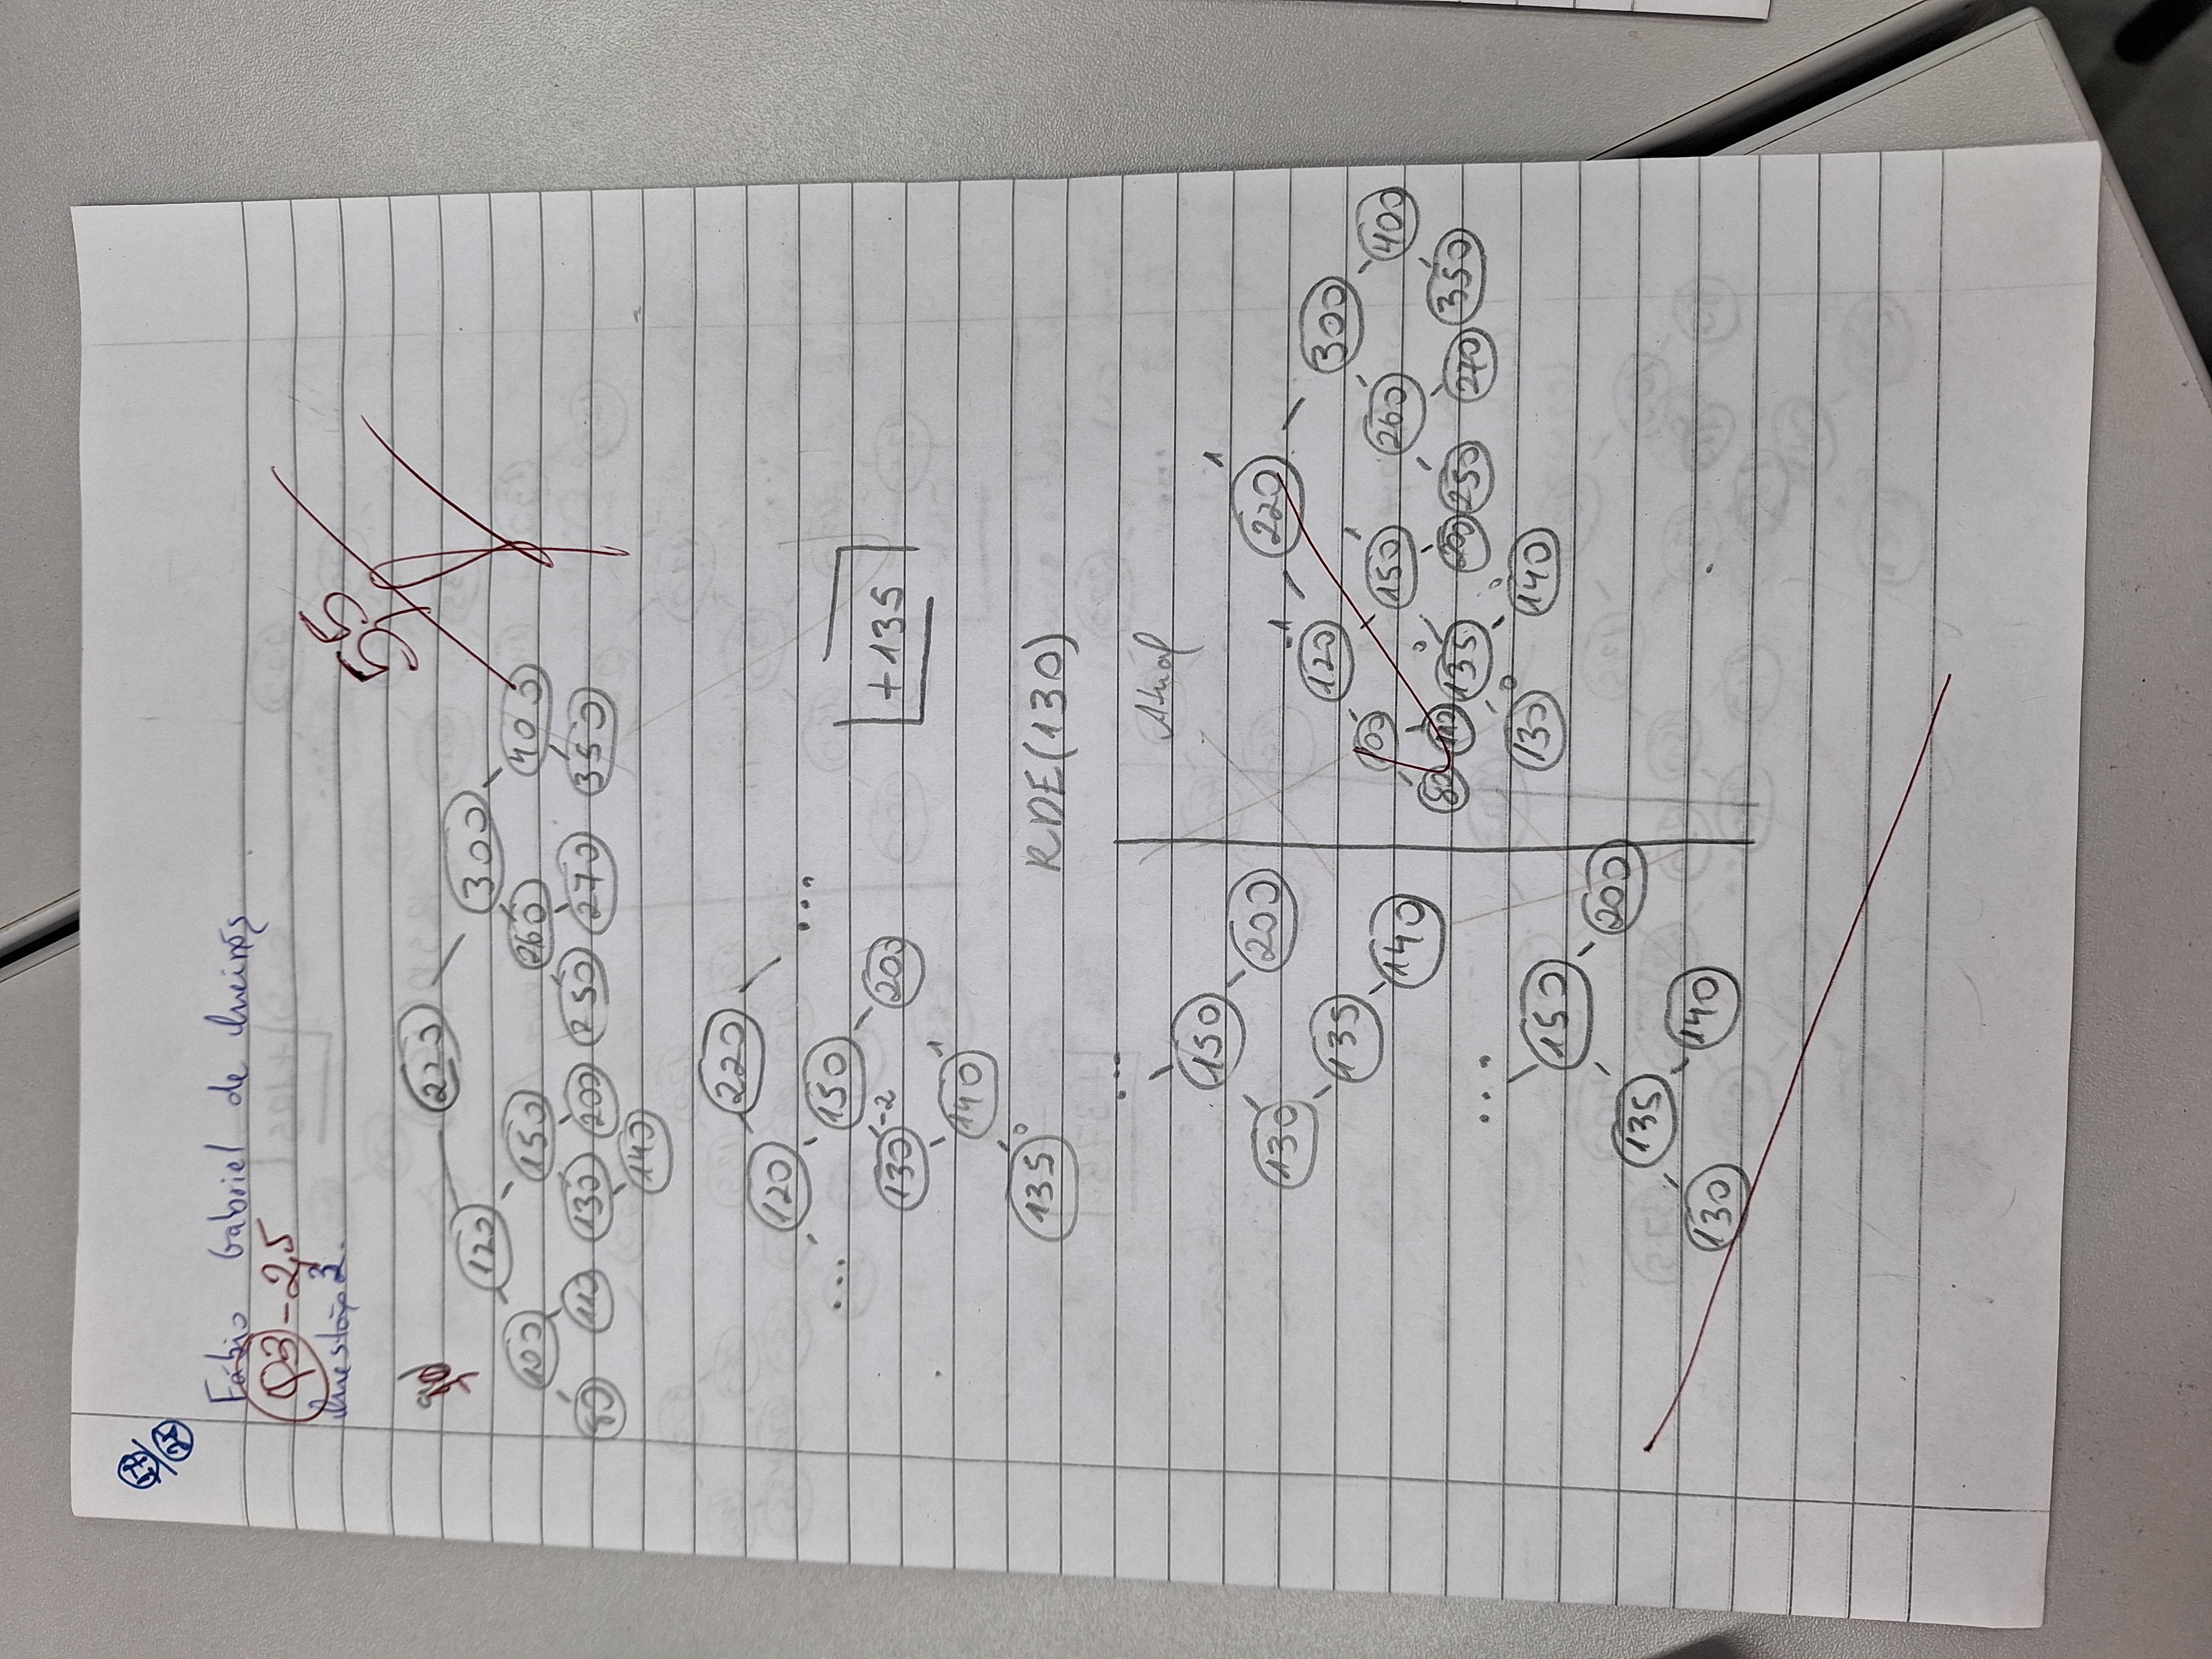 Fábio Gabriel de Queirós
Q3 - 2,5
Questão 3.
5,5
220
120 300
100 150 260 400
80 110 130 200 250 270 350
140
220
120 ...
... 150
130 -2 200
+135
140 1
135 0
RDE(130)
...
150
130 200
135
140
...
150
135 200
130 140
Atual
220 1
120 -1 300
100 150 1 260 400
80 110 135 0 200 250 270 350
130 0 140 0